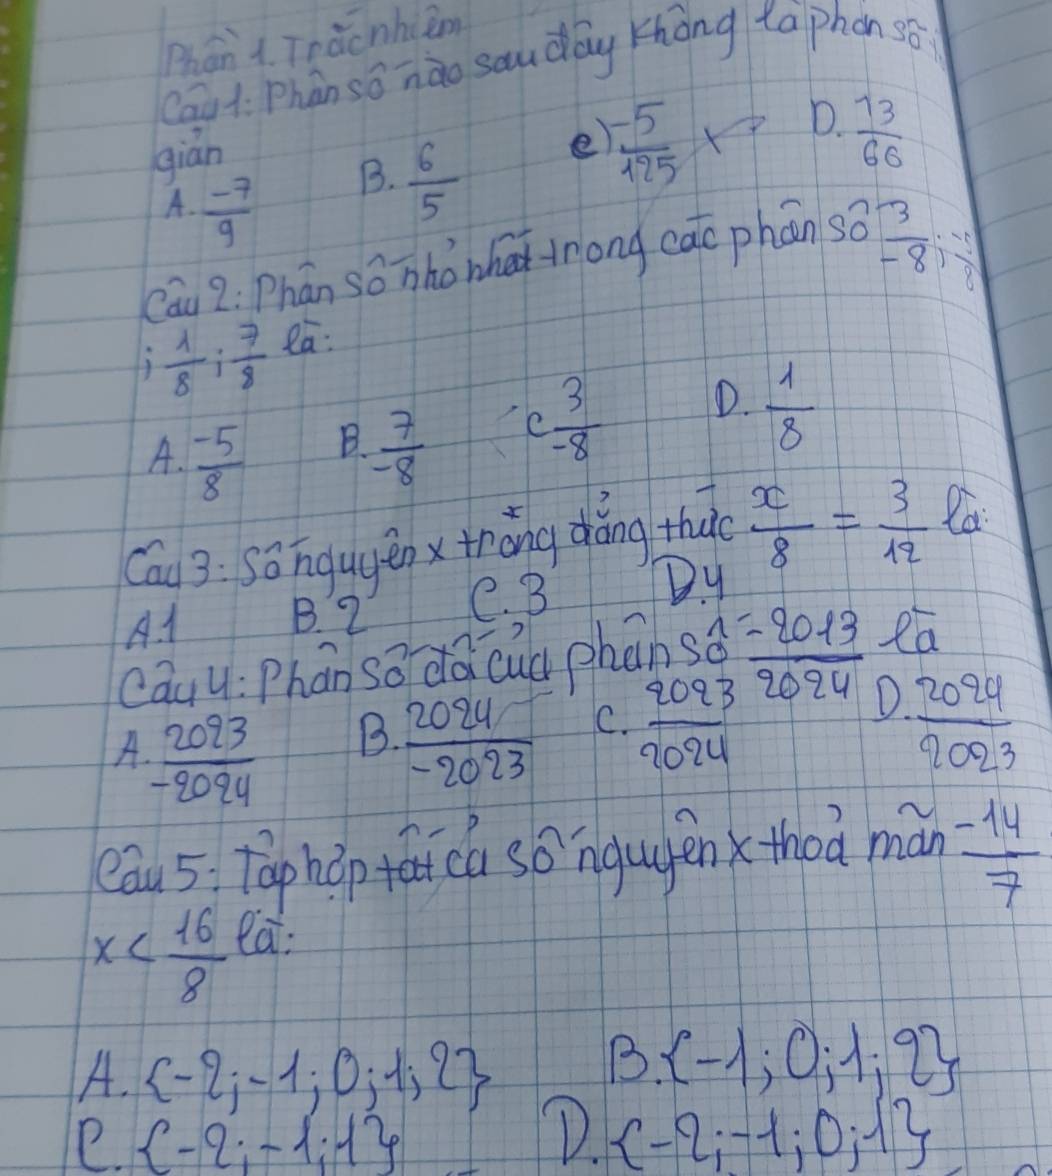 Phần 1. Trắc nhiệm
Câu 1: Phân số nào sau đây không là phân số
giản
A. -7/9 B. 6/5 C) -5/125 D. 13/66
Câu 2: Phân số nhỏ nhất trong các phân số 3/-8; -5/8
; 1/8; 7/8 là:
A. -5/8 B. 7/-8 C 3/-8 D. 1/8
Câu 3: Số nguyên x trong đẳng thức x/8 = 3/12 là:
A.1 B. 2 C. 3 D.4
Câu 4: Phân số đối của phân số -2013/2024 là
A. 2023/-2024 B. 2024/-2023 C. 2023/2024 D. 2024/2023
Câu 5: Tập hợp tất cả số nguyên x thoả mãn -14/7
x < 16/8 là:
A. {-2; -1; 0; 1; 2} B. {-1; 0; 1; 2}
C. {-2; -1; 1} D. {-2; -1; 0; 1}